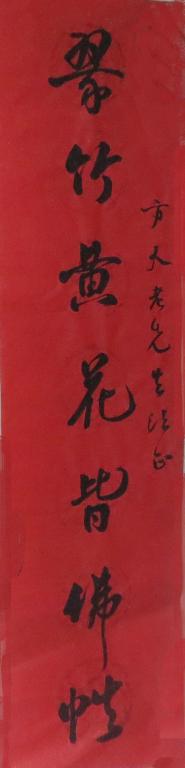 方人老先生法正
翠竹黄花皆佛性